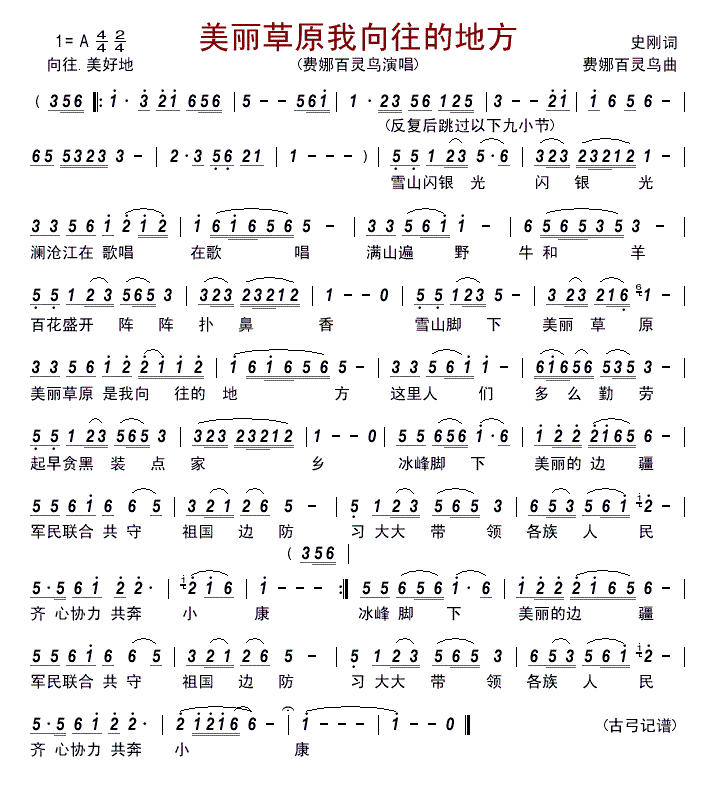 美丽草原我向往的地方
1= A 4/4 2/4
史刚词
向往.美好地
(费娜百灵鸟演唱)
费娜百灵鸟曲
( 356 |: 1· 3 21 656 | 5 - - 561 | 1· 23 56 125 | 3 - - 21 | 1 6 5 6 - |
(反复后跳过以下九小节)
65 5323 3 - | 2·3 56 21 | 1 - - - ) | 5 5 1 23 5·6 | 323 23212 1 - |
雪山闪银 光 闪 银 光
3 3 5 6 1 212 | 1 6 1656 5 - | 3 3 561 1 - | 6 56535 3 - |
澜沧江在 歌唱 在歌 唱 满山遍 野 牛和 羊
5 5 1 23 565 3 | 323 23212 | 1 - - 0 | 5 5 123 5 - | 3 23 216 61 - |
百花盛开 阵 阵 扑 鼻 香 雪山脚 下 美丽 草 原
3 3 5 6 12 2112 | 1 61656 5 - | 3 3 561 1 - | 61656 535 3 |
美丽草原 是我向 往的 地 方 这里人 们 多 么 勤 劳
5 5 1 23 565 3 | 323 23212 | 1 - - 0 | 5 5 656 1·6 | 1 2 2 2165 6 - |
起早贪黑 装 点 家 乡 冰峰脚 下 美丽的 边 疆
5 5 6 1 6 65 | 321 26 5 - | 5 123 565 3 | 653 561 12 - |
军民联合 共 守 祖国 边 防 习 大大 带 领 各族 人 民
( 356 |
5·5 61 2 2· | 1216 | 1 - - - :| 55 656 1·6 | 122 2165 6 - |
齐 心协力 共奔 小 康 冰峰 脚 下 美丽的边 疆
5561 6 65 | 321 26 5 - | 5 123 565 3 | 653 561 12 - |
军民联合 共 守 祖国 边 防 习 大大 带 领 各族 人 民
5·5 61 2 2· | 2 12166 - - | 1 - - - | 1 - - 0 ‖
(古弓记谱)
齐 心协力 共奔 小 康